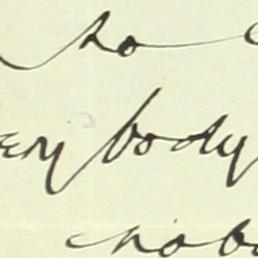 so
ery body
nobo